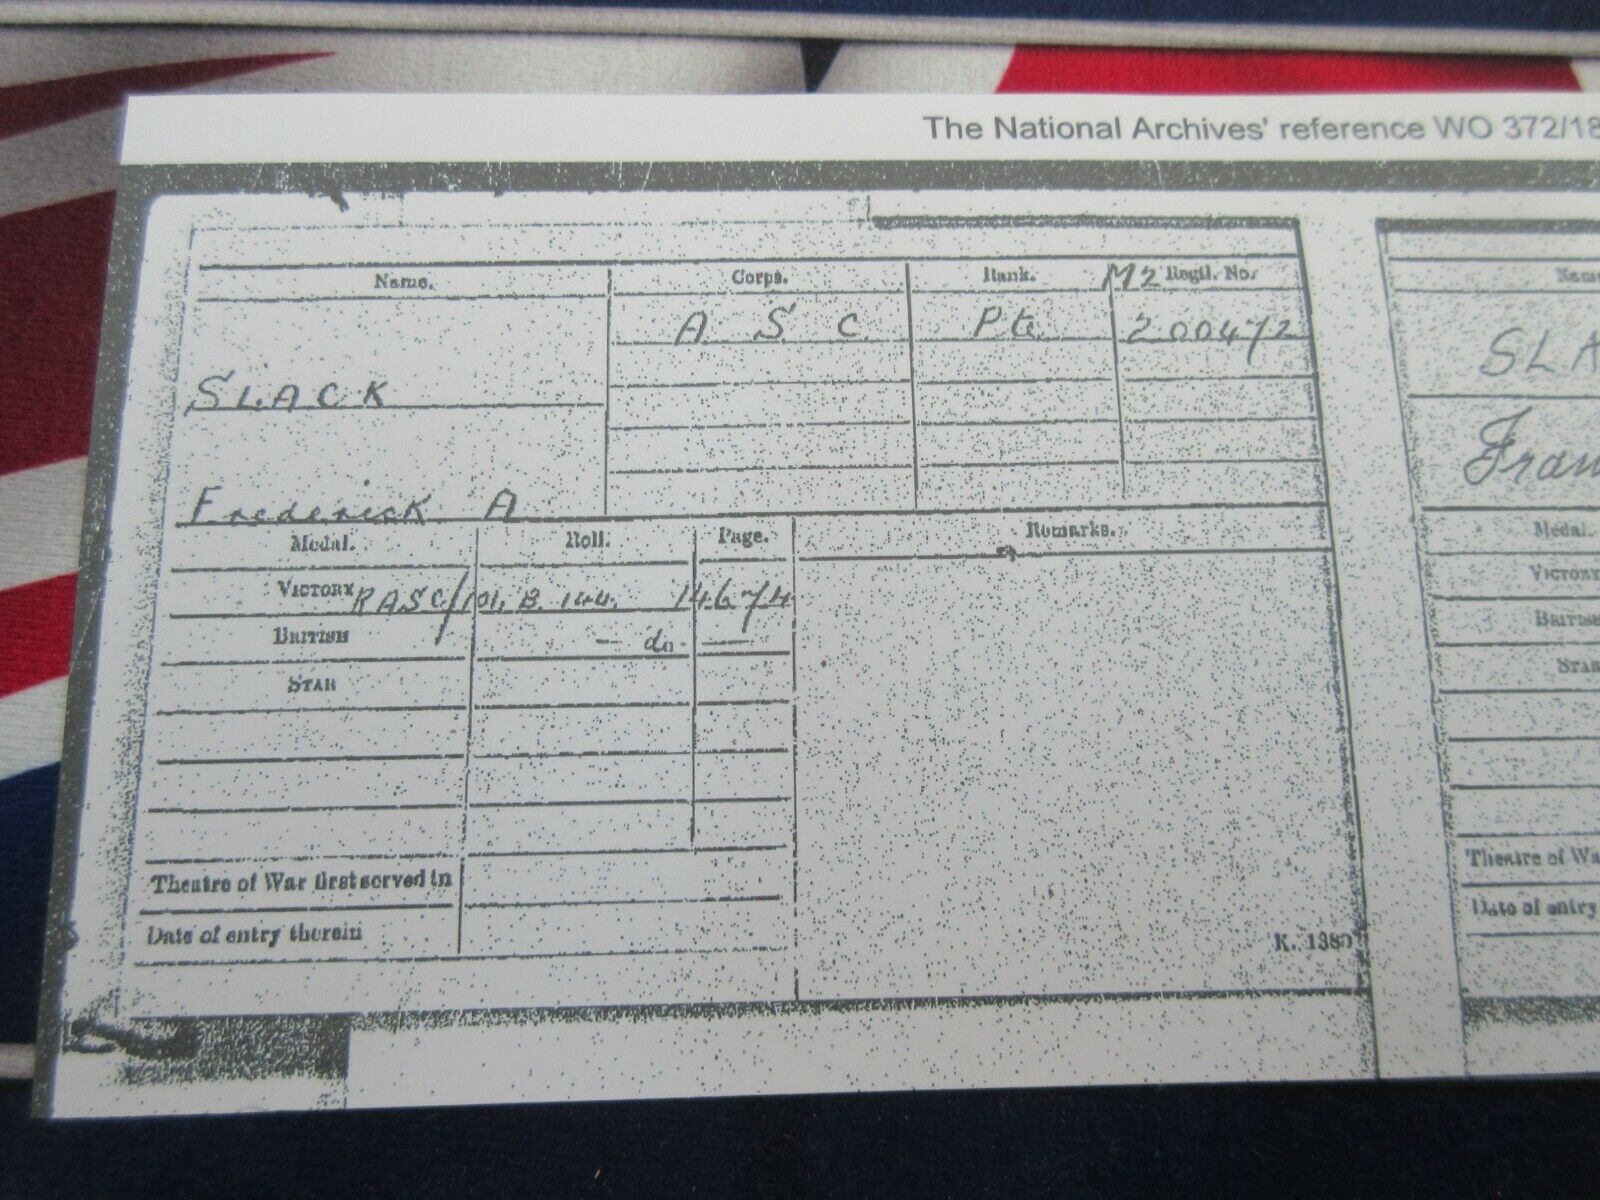 The National Archives' reference WO 372/18
Name. Corps. Rank. M2 Regtl. No.
A S C Pte 200472
SLACK
Frederick A
Medal. Roll. Page. Remarks.
VICTORY RASC/101. B. 144. 14674
BRITISH — do — —
STAR
Theatre of War first served in
Date of entry therein
K. 1380
Name
SLA
Fran
Medal.
VICTORY
BRITISH
STAR
Theatre of Wa
Date of entry